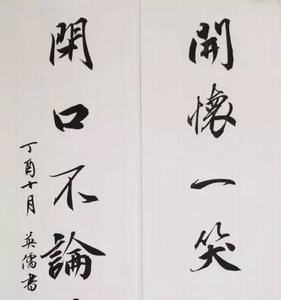 開懷一笑
閉口不論
丁酉十月 英儒書